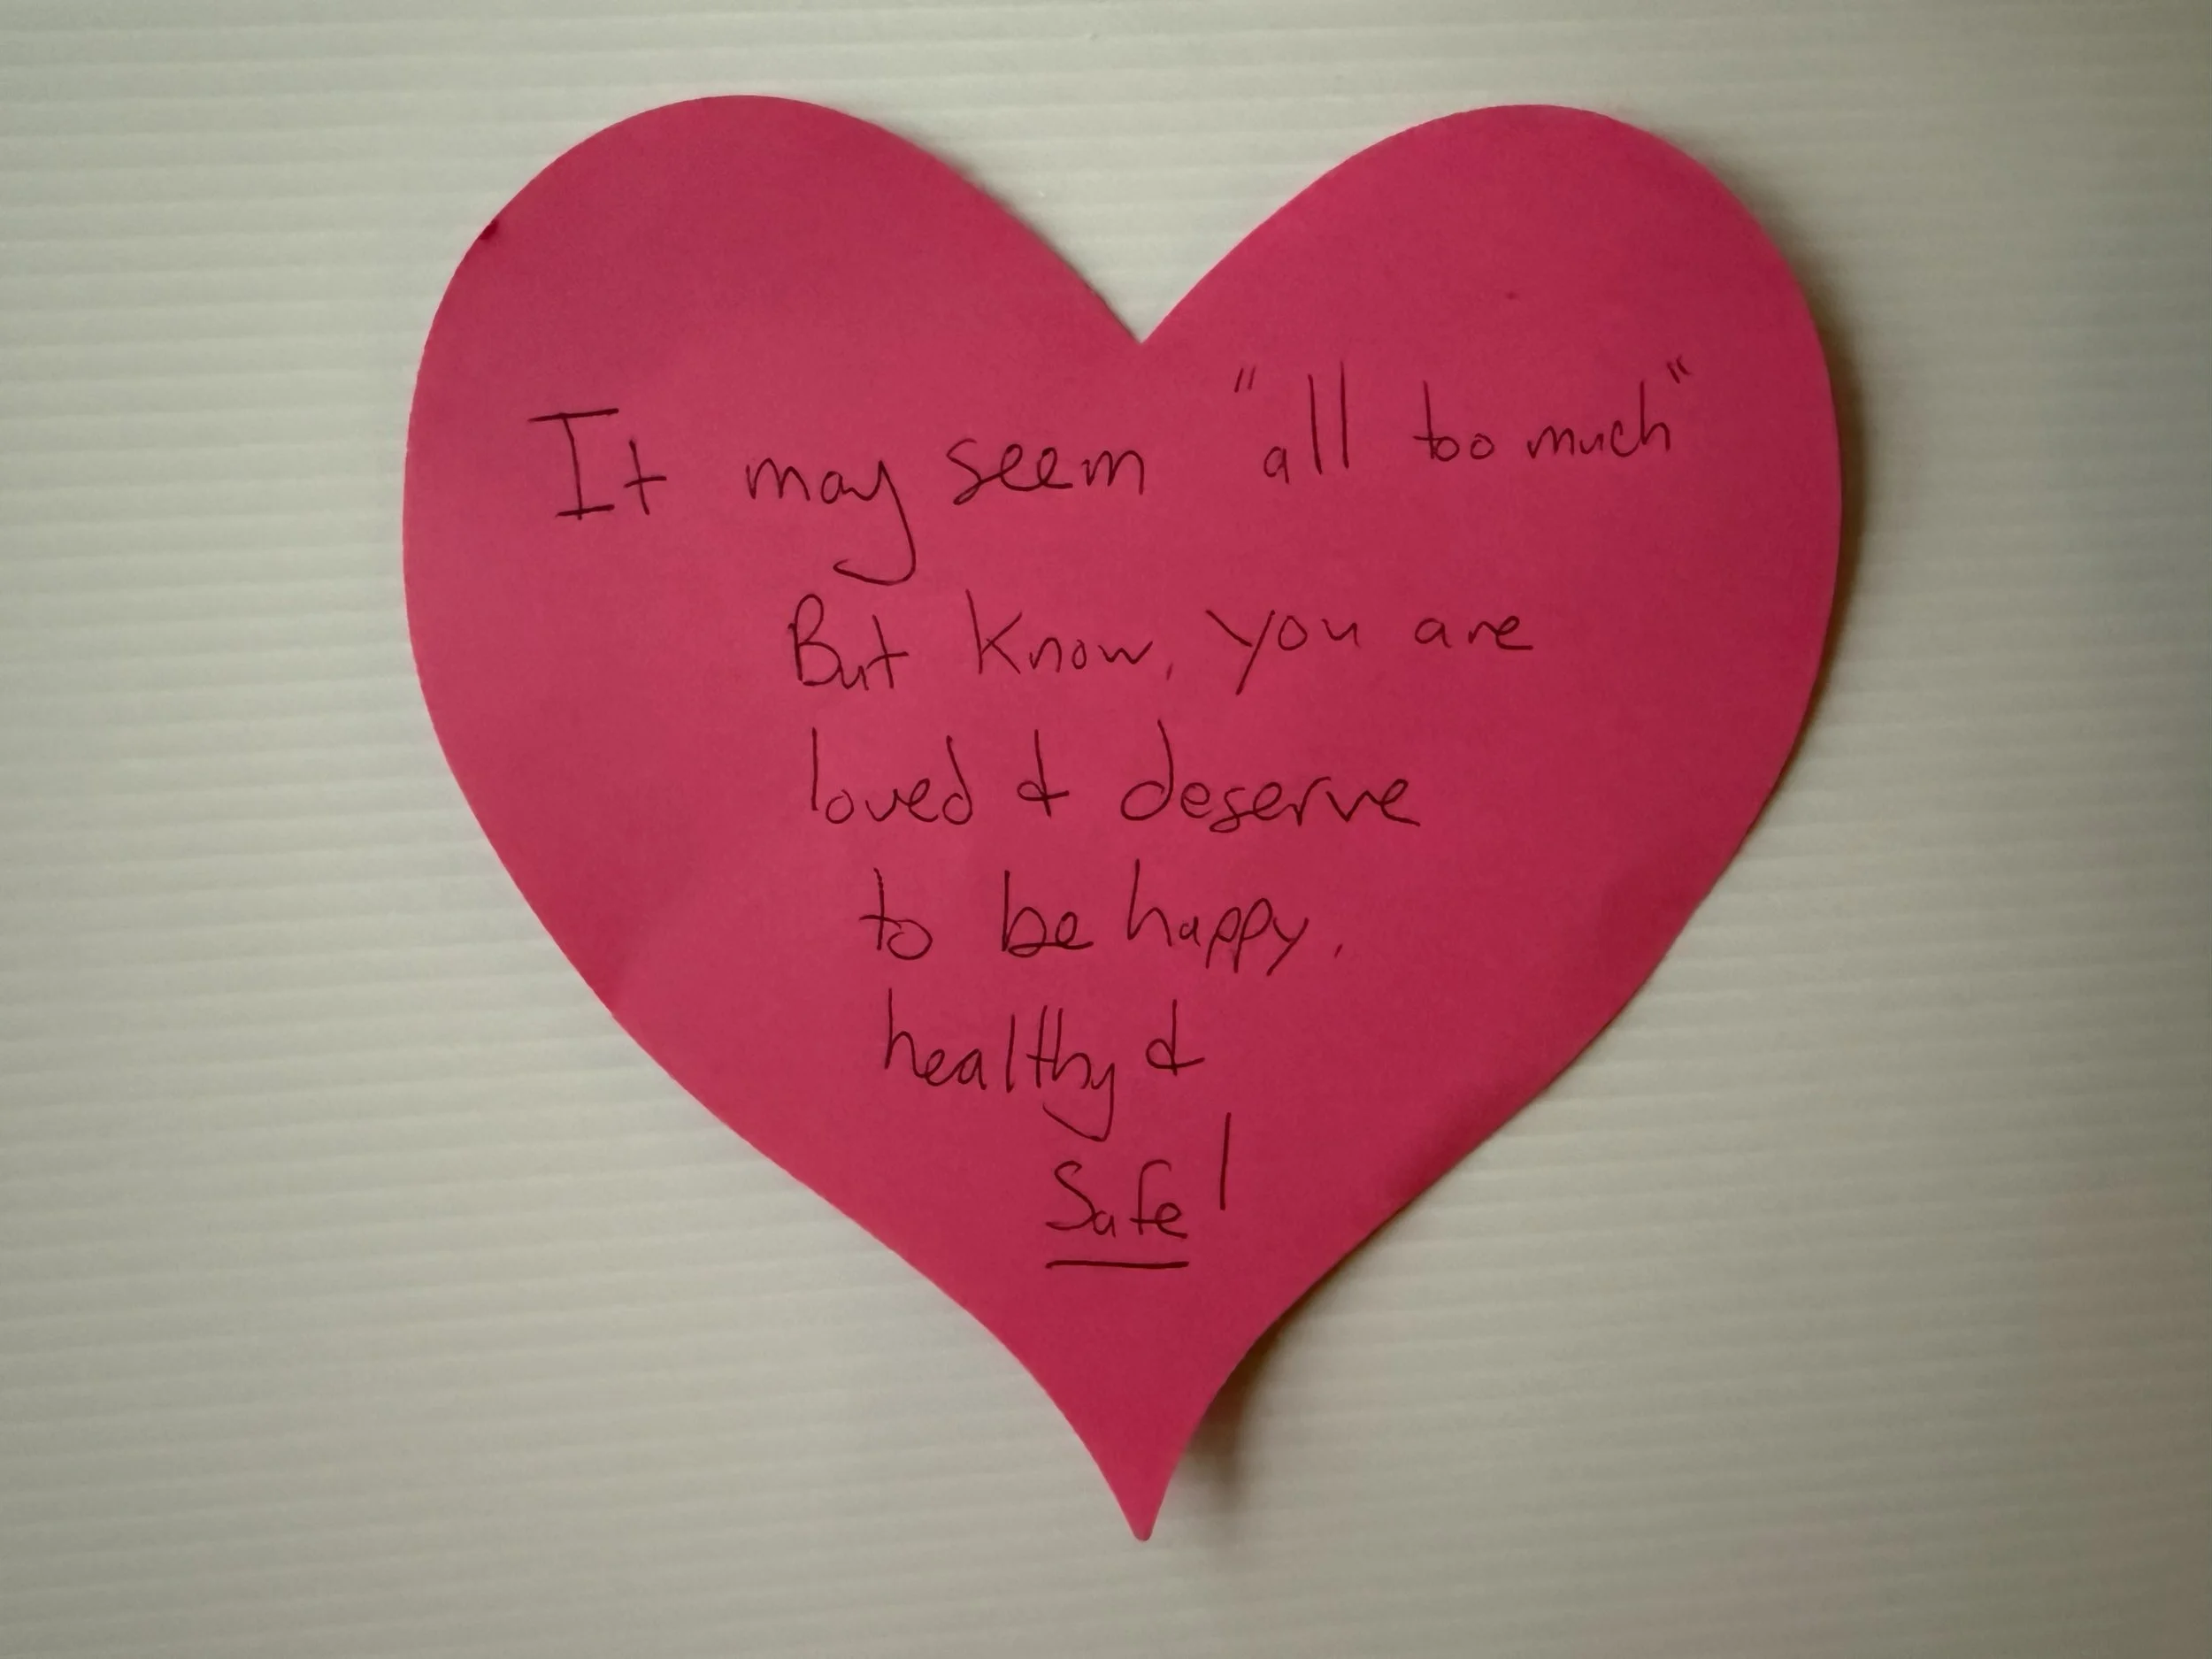 It may seem "all too much"
But know, you are
loved & deserve
to be happy,
healthy &
Safe!